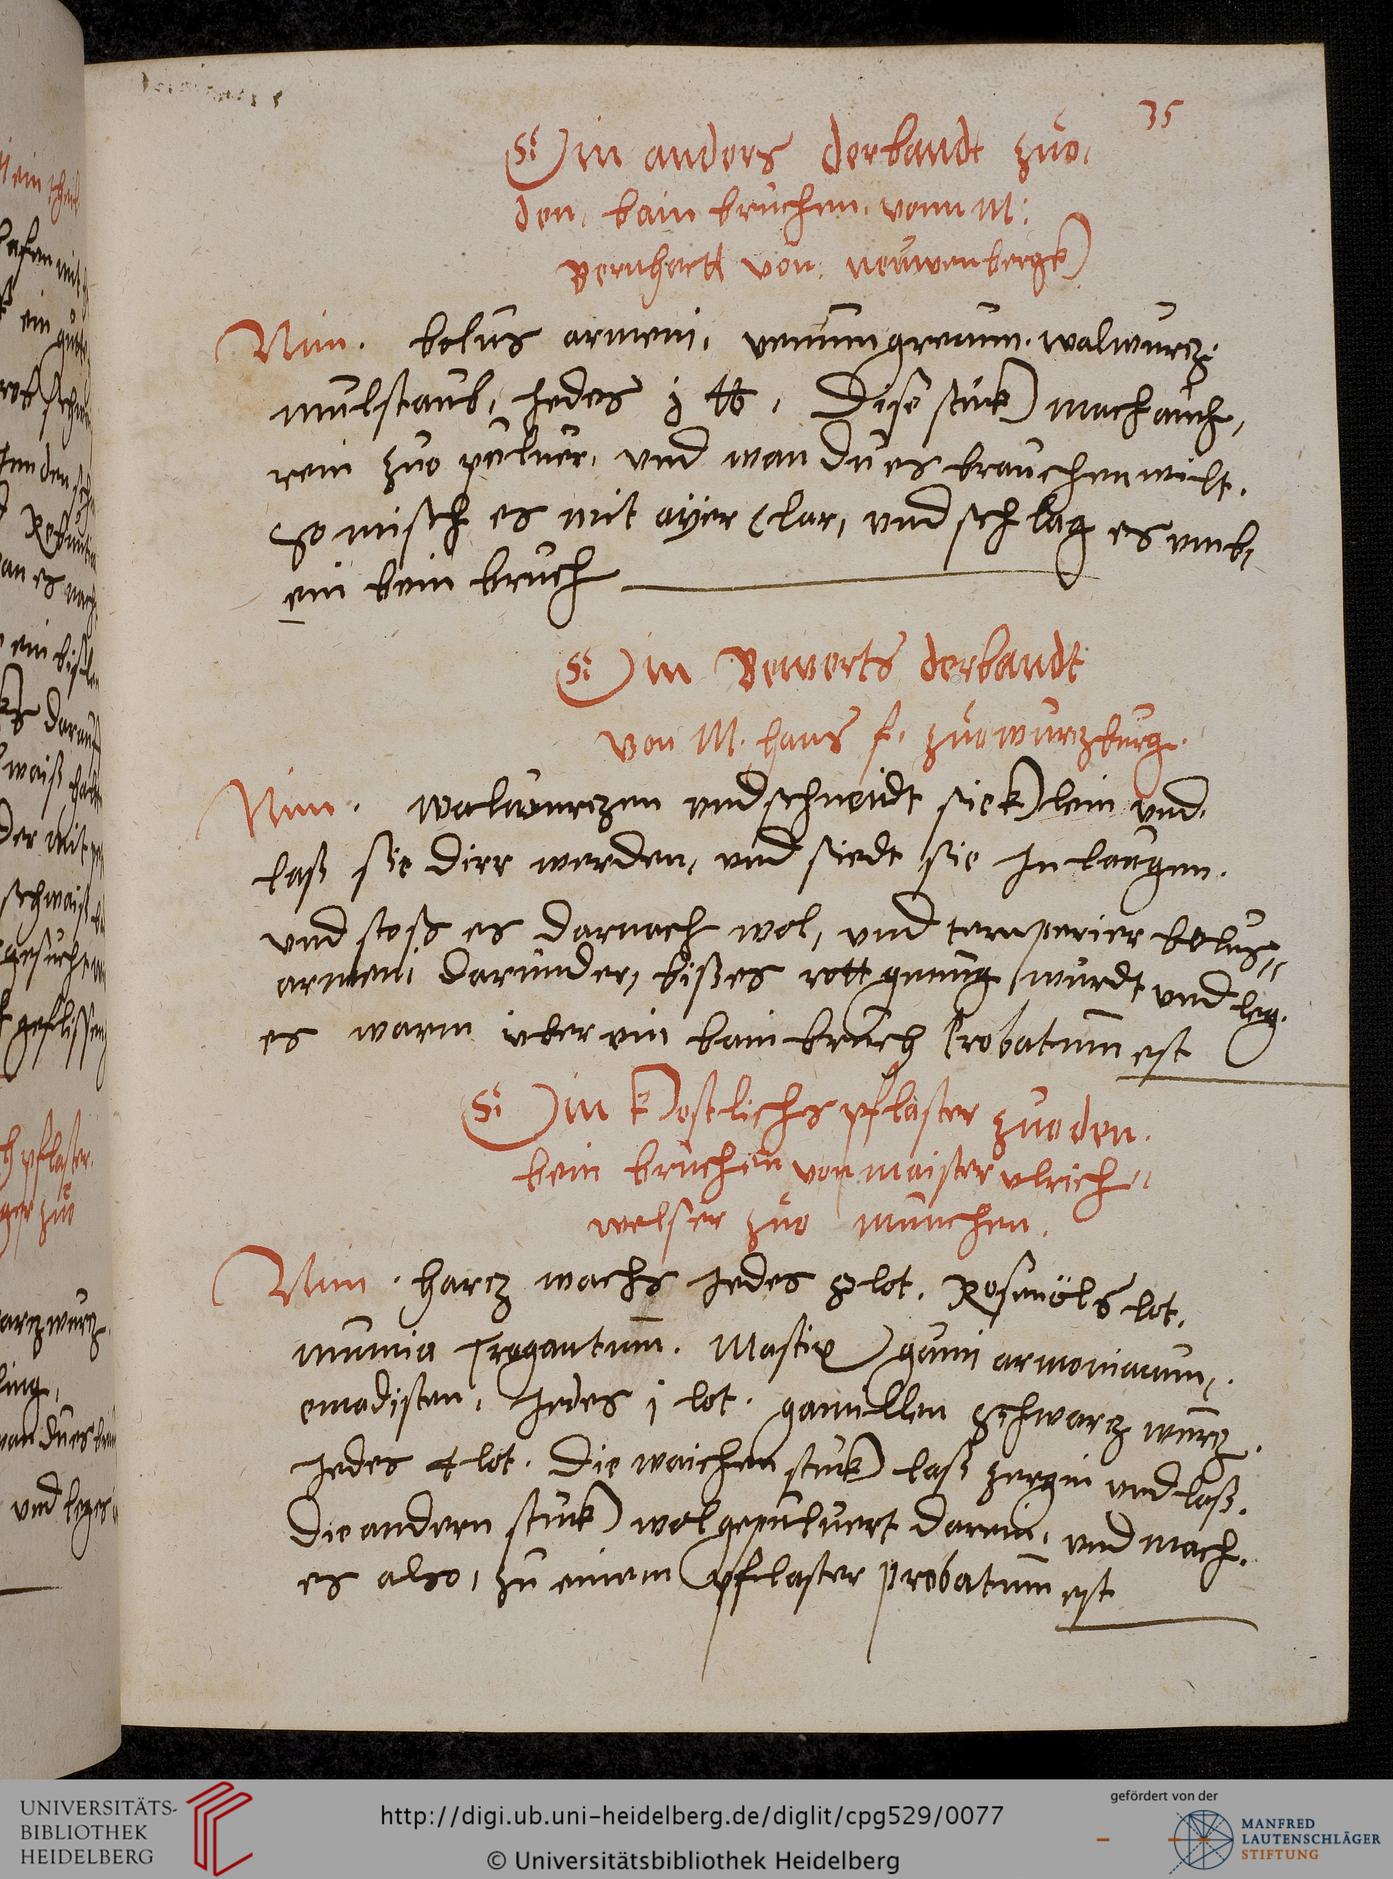 35
Ein anders derbandt zuo
den bain bruchen vonn M:
Bernhartt von neuwenbergk
Nim. bolus armeni, venumgrecum. walwurcz.
mulstaub, Jedes j ℔, Dise stuck mach auch,
rein zuo puluer, und wan du es brauchen wilt.
so misch es mit ayer clar, und schlag es umb,
ein bein bruch
Ein Bewerts derbandt
von M. hans f. zuo wurczburg.
Nim. walwurczen und schneidt sie klein und.
laß sie dirr werden, und siedt sie In laugen.
und stoß es darnach wol, und temperier bolus
armeni darunder, biß es rott genug wurdt und leg.
es warm uber ein bain bruch Probatum est
Ein kostlichs pflaster zuo den.
bein bruchen von maister ulrich,
welser zuo munchen.
Nim. harcz wachs Jedes 8 lot. Rosenöls 6 lot.
mumia Tragantum. Mastix gumi armoniacum,.
Jedes j lot. gamillen schwarcz wurcz.
Jedes 4 lot. Die waichen stuck laß zergin und laß.
Die andern stuck wol gepuluert darein, und mach.
es also, zu einem pflaster probatum est
UNIVERSITÄTS-
BIBLIOTHEK
HEIDELBERG
http://digi.ub.uni-heidelberg.de/diglit/cpg529/0077
© Universitätsbibliothek Heidelberg
gefördert von der
MANFRED
LAUTENSCHLÄGER
STIFTUNG